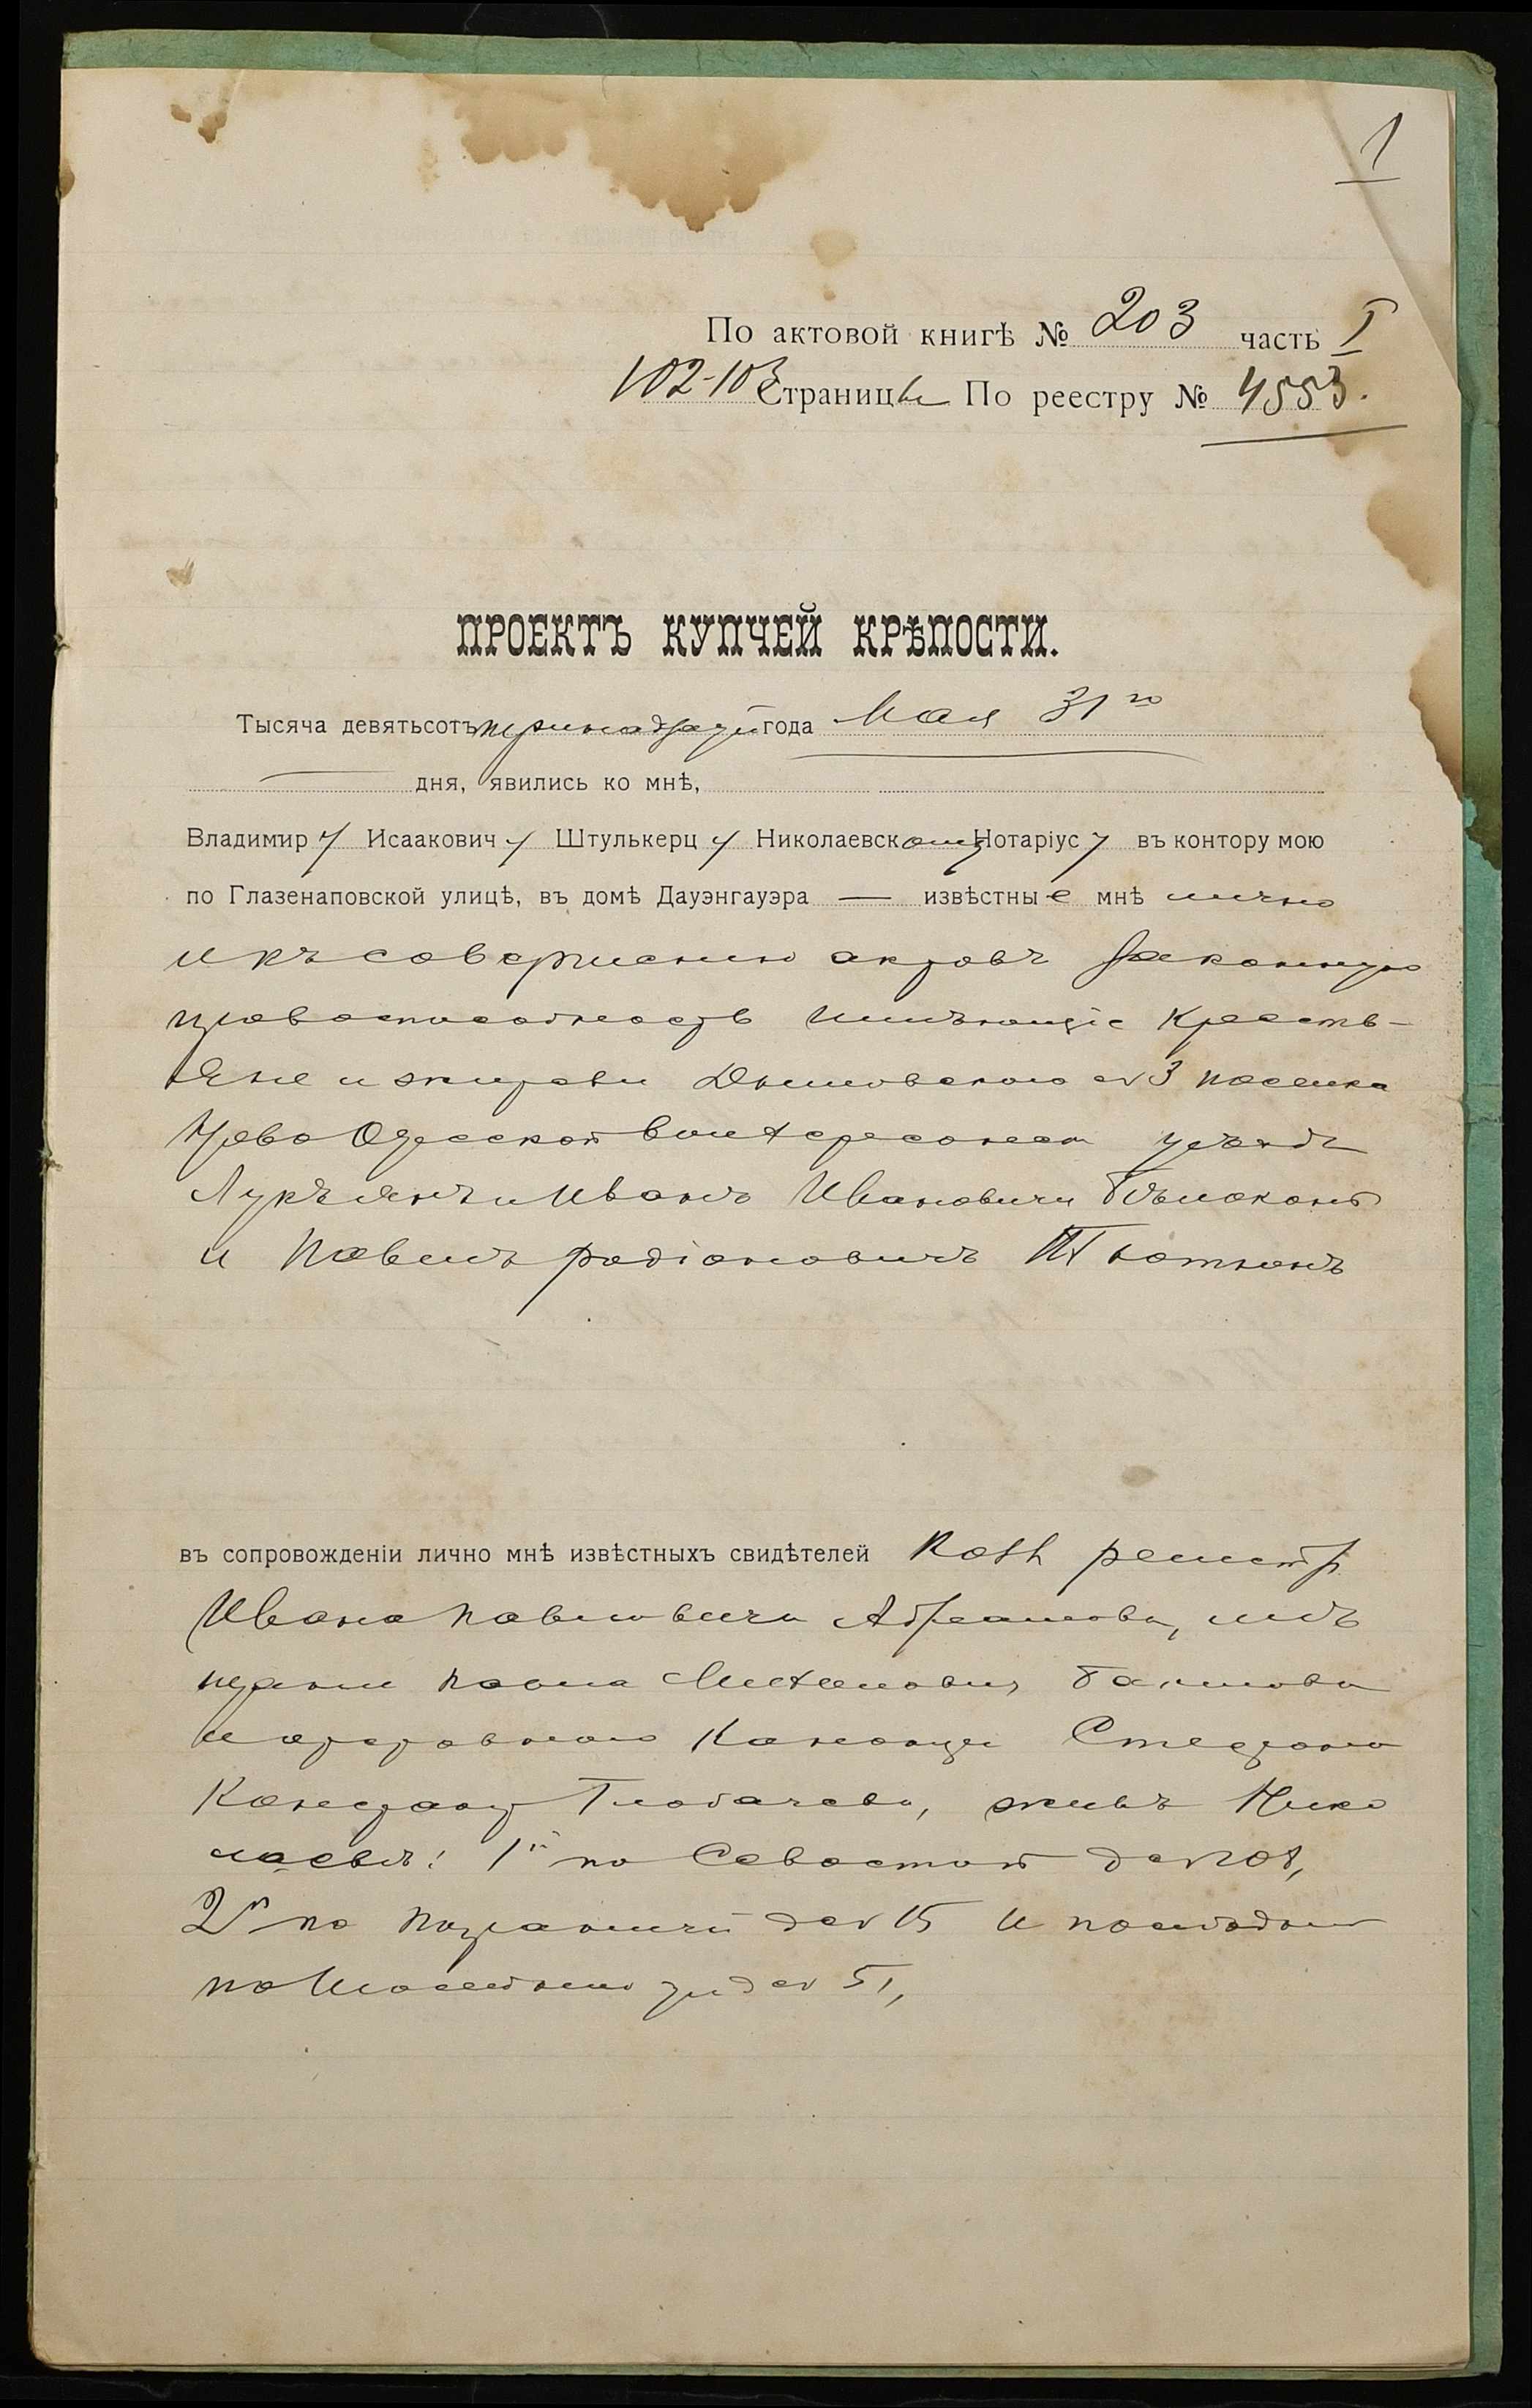 1
По актовой книгѣ № 203 часть I
102-103 Страницы По реестру № 4553.
ПРОЕКТЪ КУПЧЕЙ КРѢПОСТИ.
Тысяча девятьсотъ года Мая 31го
дня, явились ко мнѣ,
Владимиру Исааковичу Штулькерцу Николаевскому Нотаріусу въ контору мою
по Глазенаповской улицѣ, въ домѣ Дауэнгауэра — извѣстные мнѣ лично
и къ совершенію актовъ законную
правоспособность имѣющіе Кресть-
яне и жители № 3 поселка
Ново Одесской Херсонск уѣзда
Лукьянъ и Иванъ Ивановичи Бѣлоконь
и Павелъ Родіоновичъ
въ сопровожденіи лично мнѣ извѣстныхъ свидѣтелей
Ивана Павловича Абрамова, мѣ
щанин
и Степана
Глобачева, жив въ Нико
лаевѣ: 1й по Севастоп д №
2й по д № 15 и послѣдн
по ул д № 51,